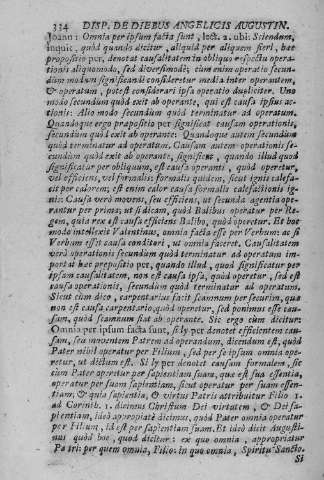 334 DISP. DE DIEBUS ANGELICIS AUGUSTIN.
Joann: Omnia per ipsum facta sunt, lect. 2. ubi: Sciendum,
inquit, quòd quando dicitur, aliquid per aliquem fieri, hæc
propositio per, denotat causalitatem in obliquo respectu opera-
tionis aliquomodo, sed diversimodè; cùm enim operatio secun-
dùm modum significandi consideretur media inter operantem,
& operatum, potest considerari ipsa operatio dupliciter. Uno
modo secundùm quòd exit ab operante, qui est causa ipsius ac-
tionis: Alio modo secundùm quòd terminatur ad operatum.
Quandoque ergo præpositio per significat causam operationis,
secundùm quòd exit ab operante: Quandoque autem secundùm
quòd terminatur ad operatum. Causam autem operationis se-
cundùm quòd exit ab operante, significat, quando illud quod
significatur per obliquum, est causa operanti, quòd operetur,
vel efficiens, vel formalis formalis quidem, sicut ignis calefa-
cit per calorem; est enim calor causa formalis calefactionis ig-
nis: Causa verò movens, seu efficiens, ut secunda agentia ope-
rantur per prima; ut si dicam, quòd Balivus operatur per Re-
gem, quia rex est causa efficiens Balivo, quòd operetur. Et hoc
modo intellexit Valentinus, omnia facta esse per Verbum: ac si
Verbum esset causa conditori, ut omnia faceret. Causalitatem
verò operationis secundùm quòd terminatur ad operatum im-
portat hæc præpositio per, quando illud, quod significatur per
ipsam causalitatem, non est causa ipsa, quòd operetur, sed est
causa operationis, secundùm quòd terminatur ad operatum.
Sicut cùm dico, carpentarius facit scamnum per securim, quæ
non est causa carpentario, quòd operetur, sed ponimus esse cau-
sam, quòd scamnum fiat ab operante. Sic ergo cùm dicitur
Omnia per ipsum facta sunt, si ly per denotet efficientem cau-
sam, seu moventem Patrem ad operandum, dicendum est, quòd
Pater nihil operatur per Filium, sed per se ipsum omnia ope-
retur, ut dictum est. Si ly per denotet causam formalem, sic
cùm Pater operetur per sapientiam suam, quæ est sua essentia,
operatur per suam sapientiam, sicut operatur per suam essen-
tiam; & quia sapientia, & virtus Patris attribuitur Filio 1.
ad Corinth. 1. dicimus Christum Dei virtutem, & Dei sa-
pientiam, ideò appropiatè dicimus, quòd Pater omnia operatur
per Filium, id est per sapientiam suam. Et ideò dicit Augusti-
nus quòd hoc, quod dicitur: ex quo omnia, appropriatur
Patri: per quem omnia, Filio: in quo omnia, Spiritui Sancto.
Si